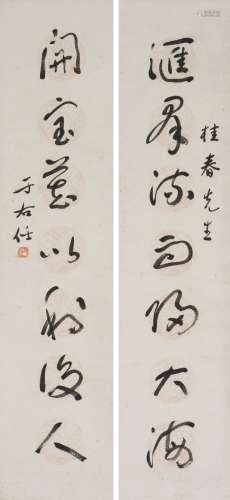 滙群流而歸大海
桂春先生
開寶藏以利後人
于右任